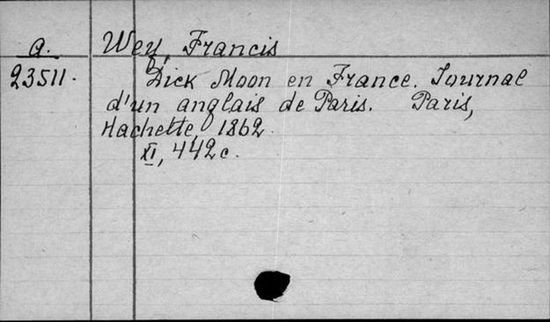 a.
23511.
Wey, Francis
Dick Moon en France. Journal
d'un anglais de Paris. Paris,
Hachette, 1862.
XI, 442 c.